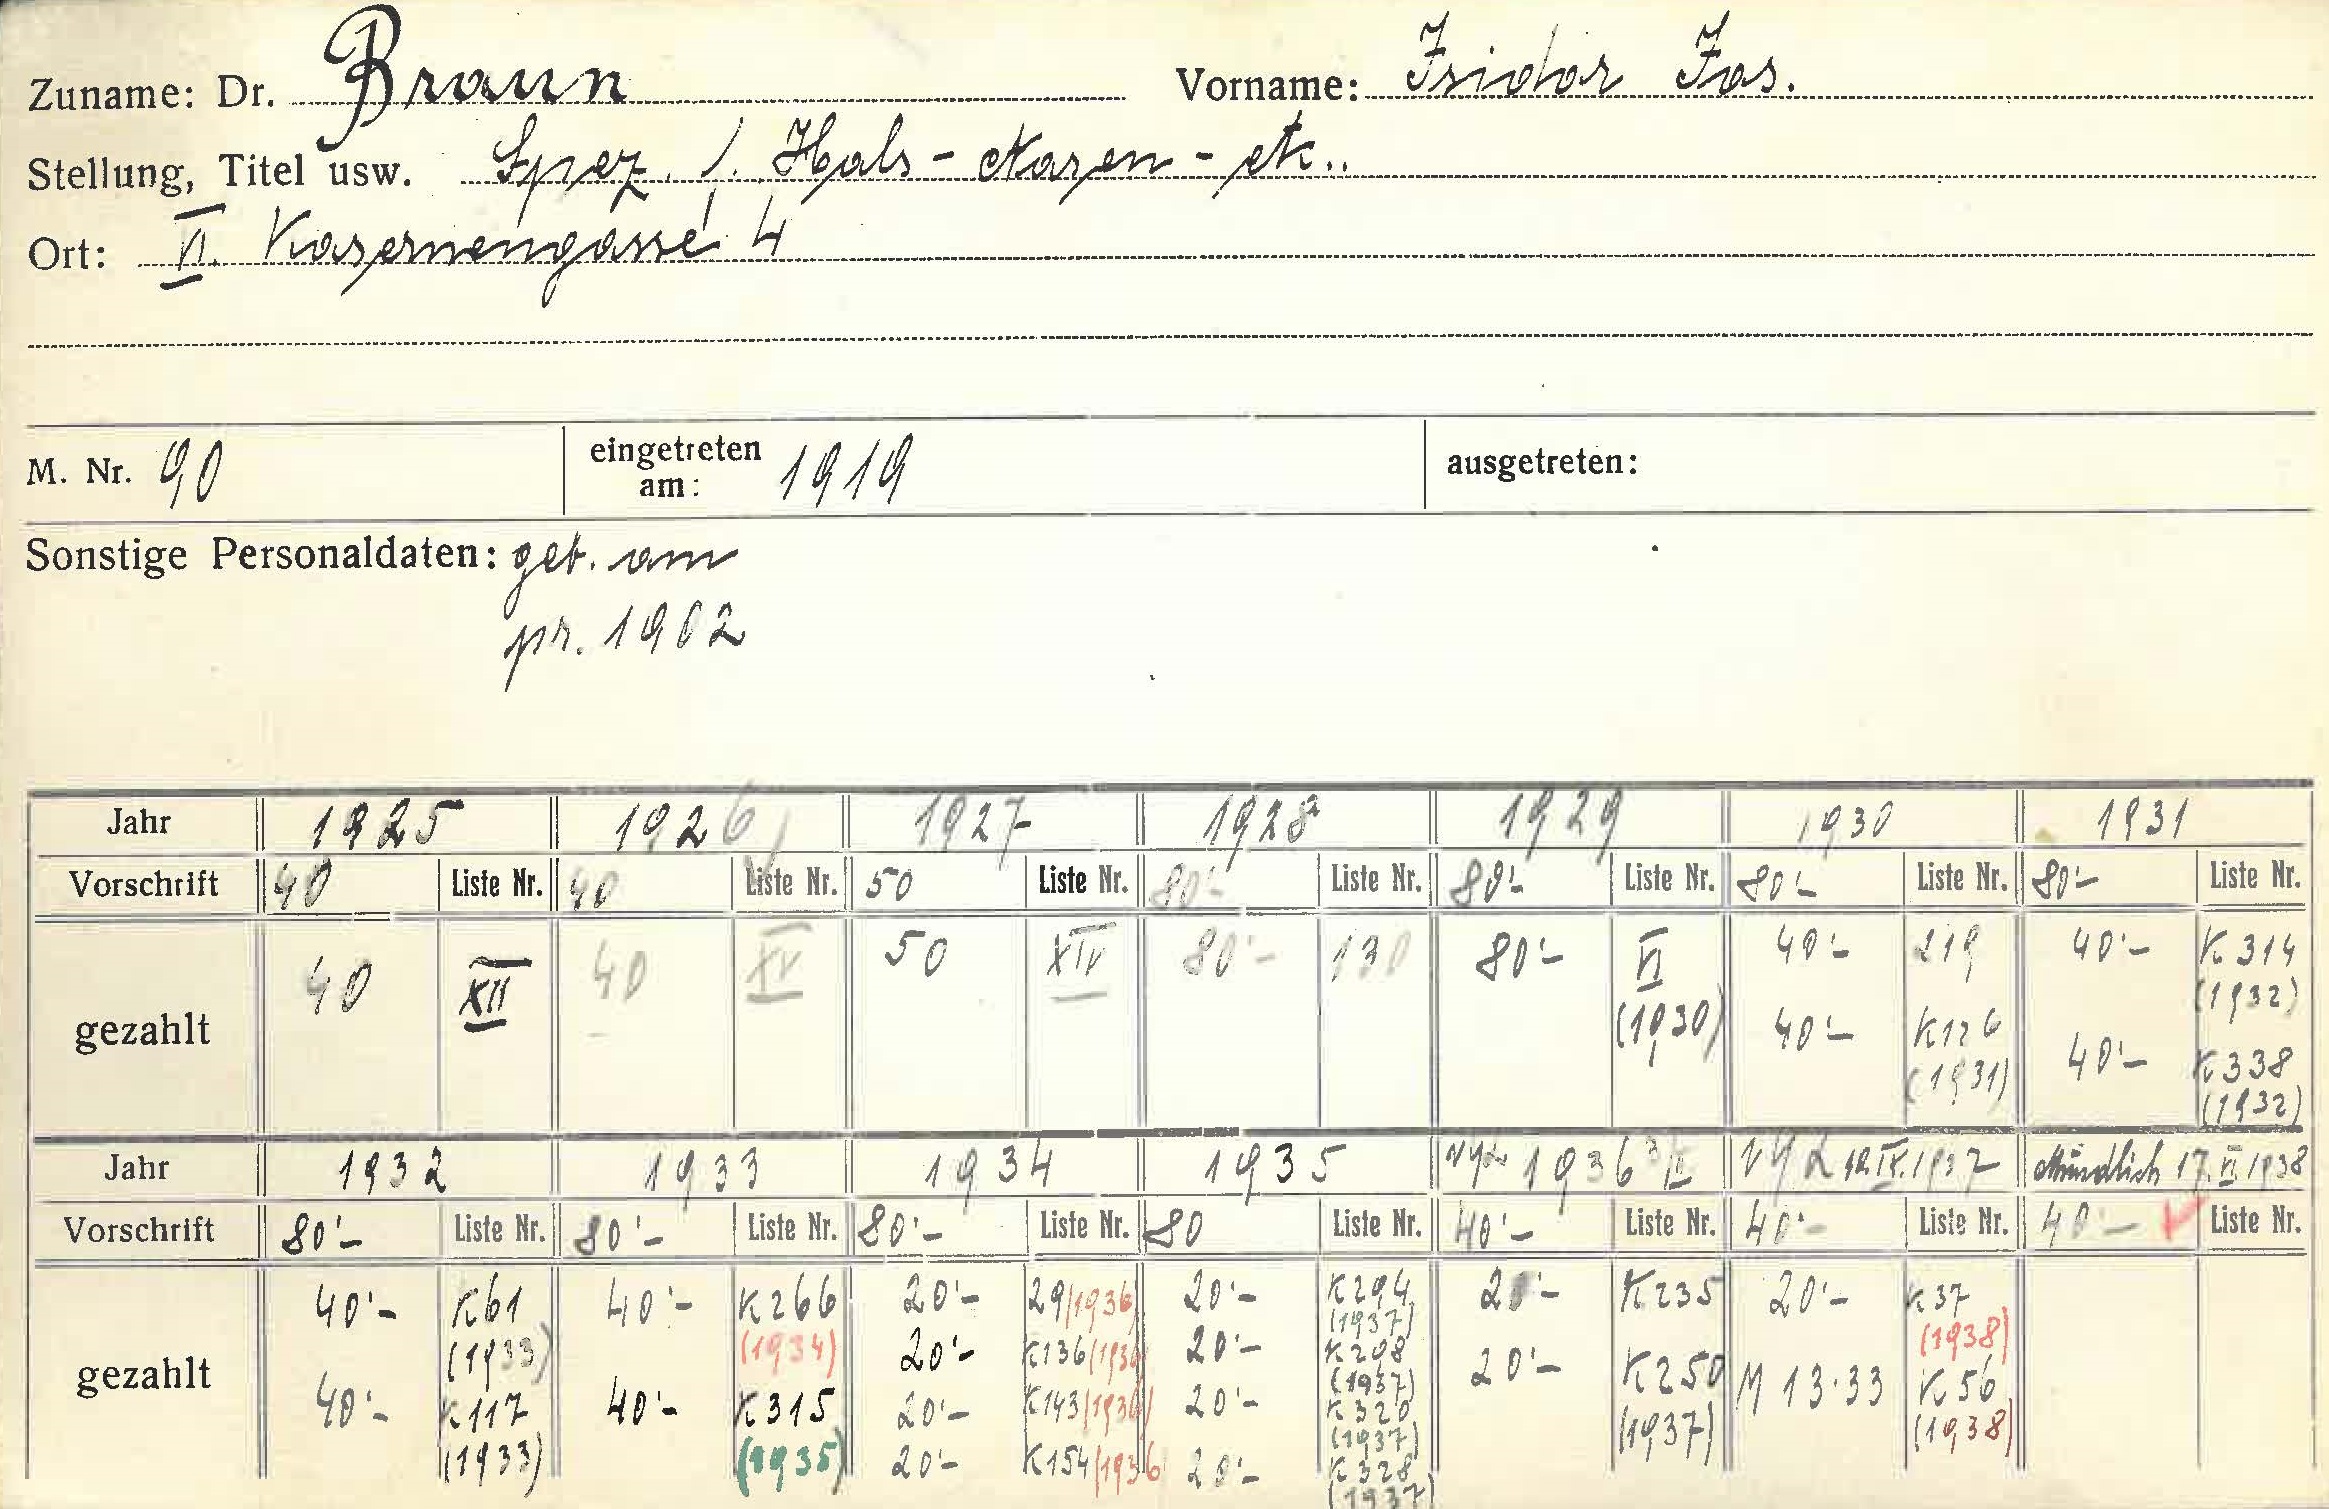 Zuname: Dr. Braun Vorname: Isidor Jos.
Stellung, Titel usw. Spez. f. Hals - Nasen - etc..
Ort: VI. Kasernengasse 4
M. Nr. 90 eingetreten am: 1919 ausgetreten:
Sonstige Personaldaten: geb. am
pr. 1902
Jahr 1925 1926 1927 1928 1929 1930 1931
Vorschrift 40 Liste Nr. 40 Liste Nr. 50 Liste Nr. 80'- Liste Nr. 80'- Liste Nr. 80'- Liste Nr. 80'- Liste Nr.
gezahlt 40 XII 40 XV 50 XIV 80'- 130 80'- VI (1930) 40'- 219 40'- K 314 (1932)
40'- K126 (1931) 40'- K 338 (1932)
Jahr 1932 1933 1934 1935 1936 1937 Mündlich 17. VI. 1938
Vorschrift 80'- Liste Nr. 80'- Liste Nr. 80'- Liste Nr. 80 Liste Nr. 40'- Liste Nr. 40'- Liste Nr. 40'- Liste Nr.
gezahlt 40'- K61 (1933) 40'- K266 (1934) 20'- 29/1936 20'- K294 (1937) 20'- K235 20'- K37 (1938)
20'- K136/1936 20'- K298 (1937) 20'- K250 (1937) M 13·33 K56 (1938)
40'- K117 (1933) 40'- K315 (1935) 20'- K143/1936 20'- K320 (1937)
20'- K154/1936 20'- K328 (1937)